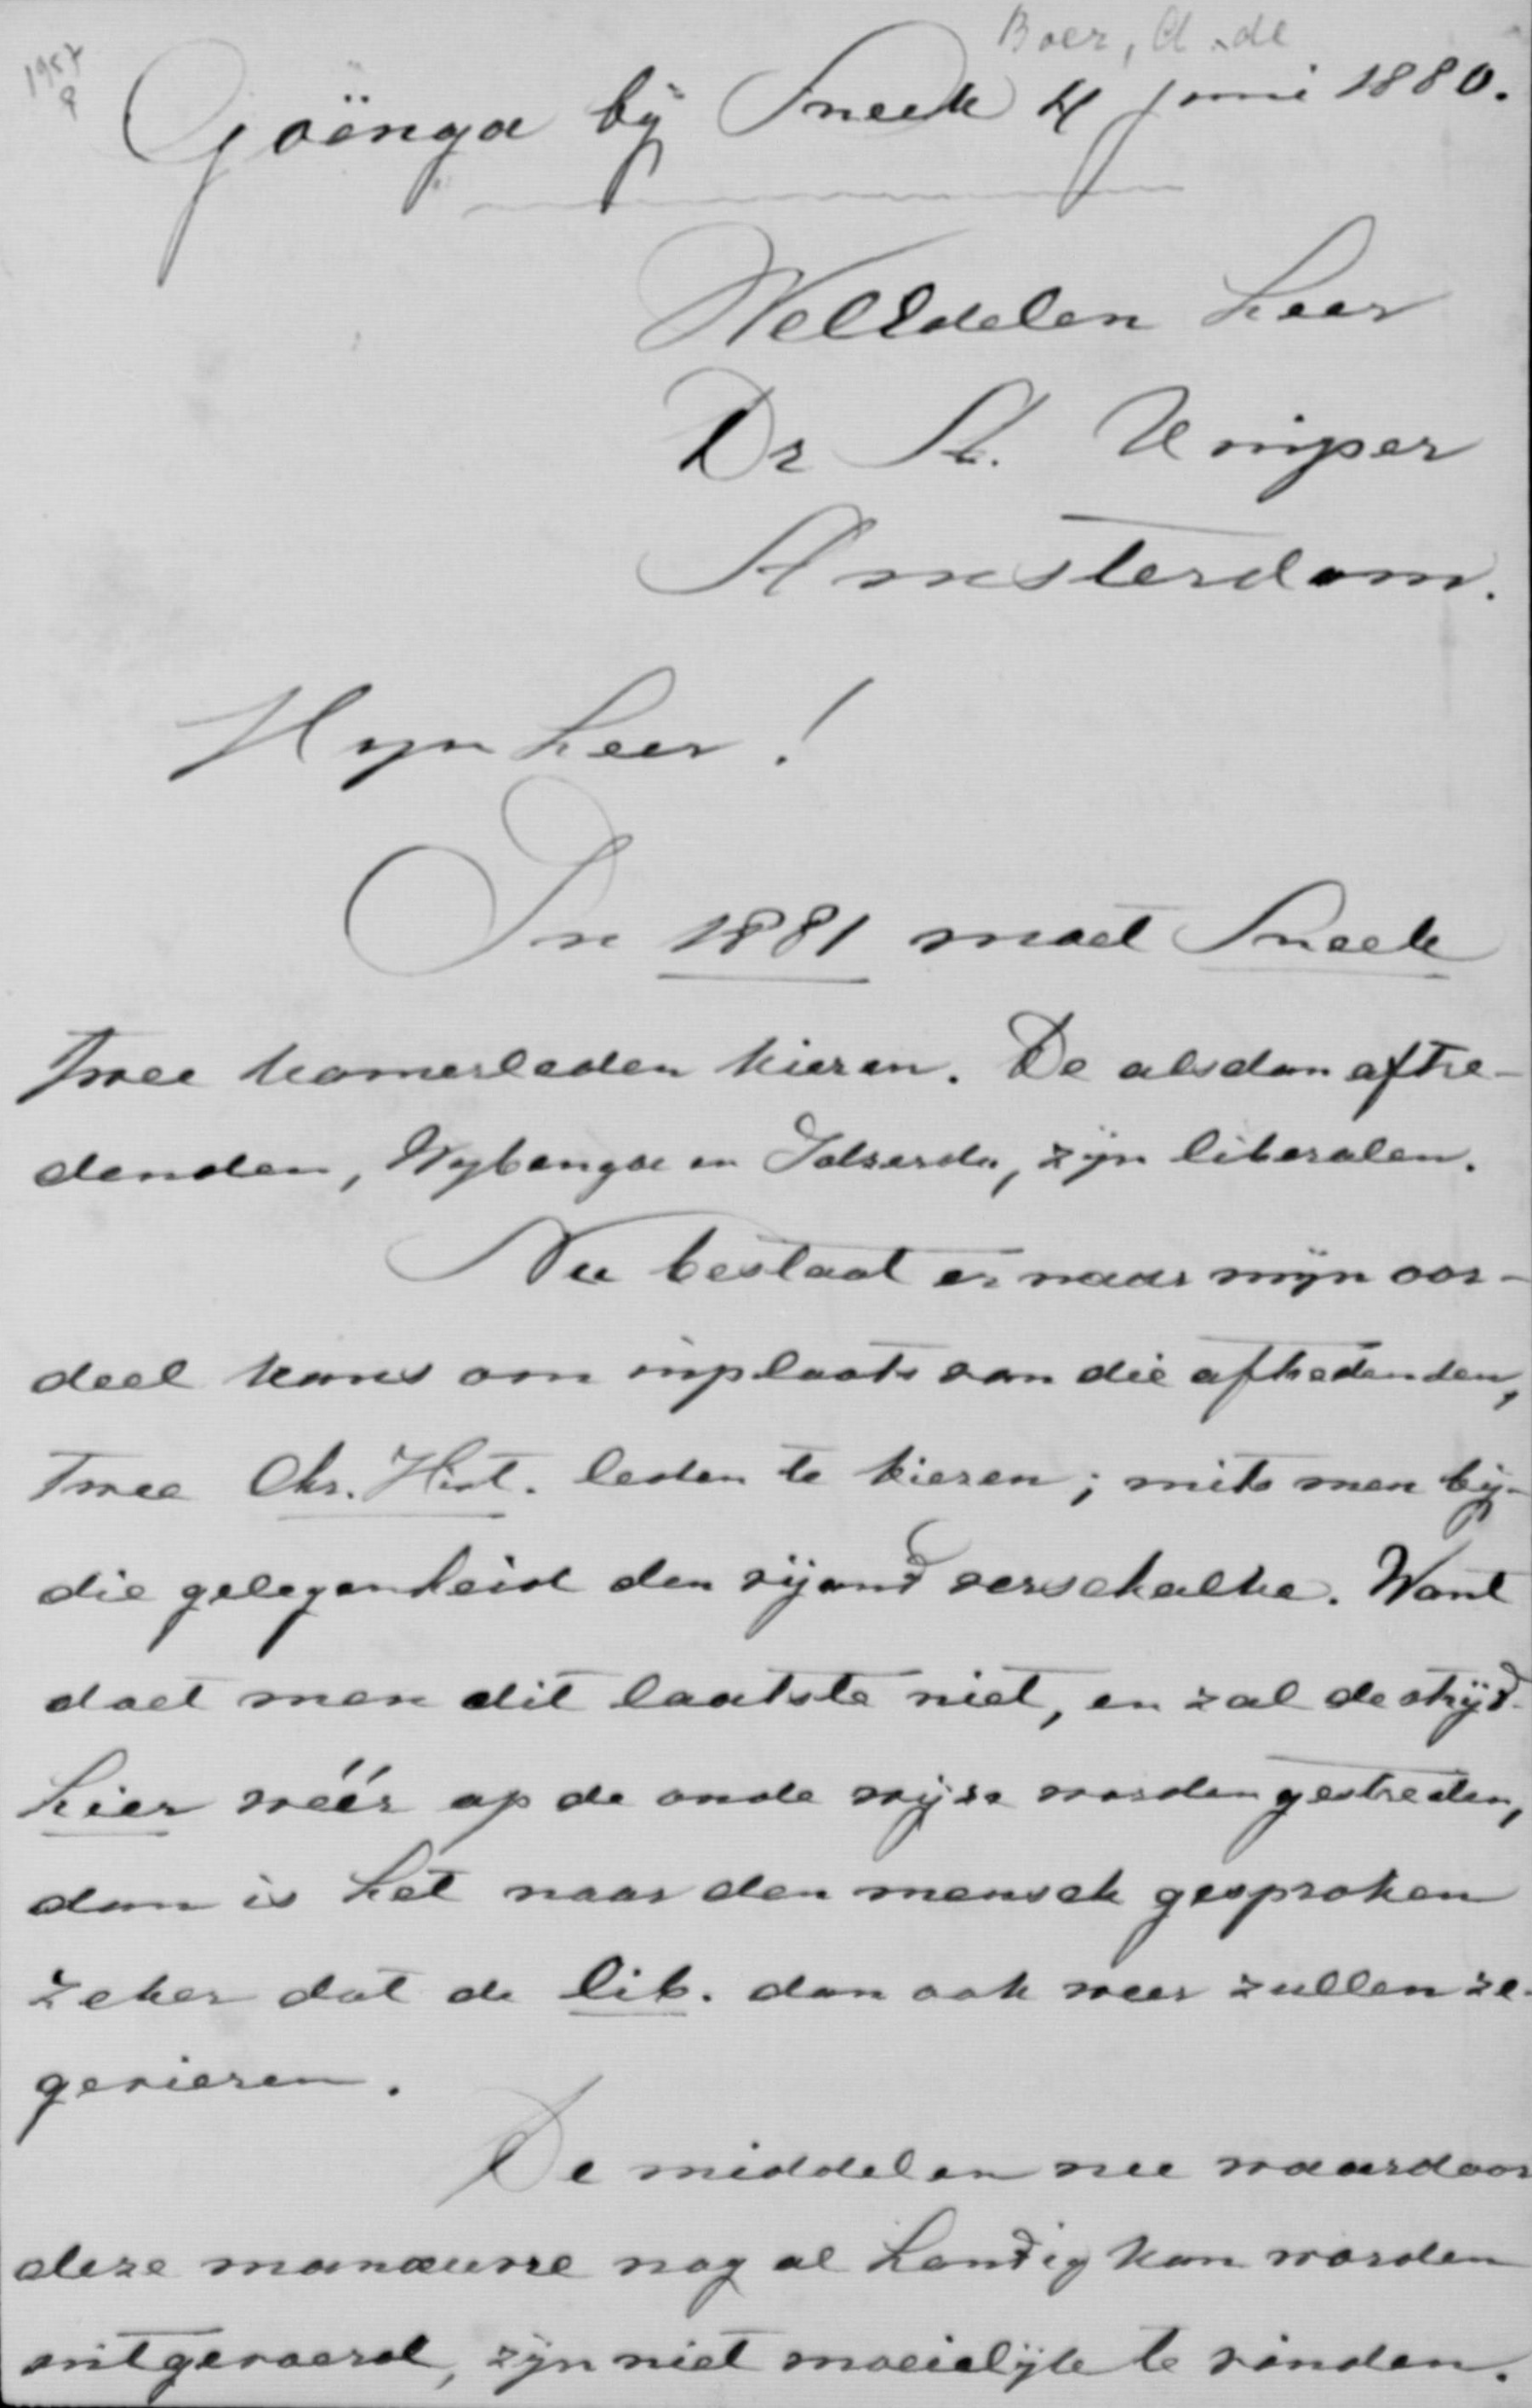 Boer, Cl. de
1957
9
Goënga bij Sneek 4 Juni 1880.
WelEdelen heer
Dr A. Kuijper
Amsterdam.
Mijnheer!
In 1881 moet Sneek
twee kamerleden kiezen. De alsdan aftre-
denden, Wybenga en Idzerda, zijn liberalen.
Nu bestaat er naar mijn oor-
deel kans om inplaats van die aftredenden,
twee Chr. Hist. leden te kiezen; mits men bij-
die gelegenheid den vijand verschalke. Want
doet men dit laatste niet, en zal de strijd
hier wéér op de oude wijze worden gestreden,
dan is het naar den mensch gesproken
zeker dat de lib. dan ook weer zullen ze-
gevieren.
De middelen nu waardoor
deze manœuvre nog al handig kan worden
uitgevoerd, zijn niet moeielijk te vinden.